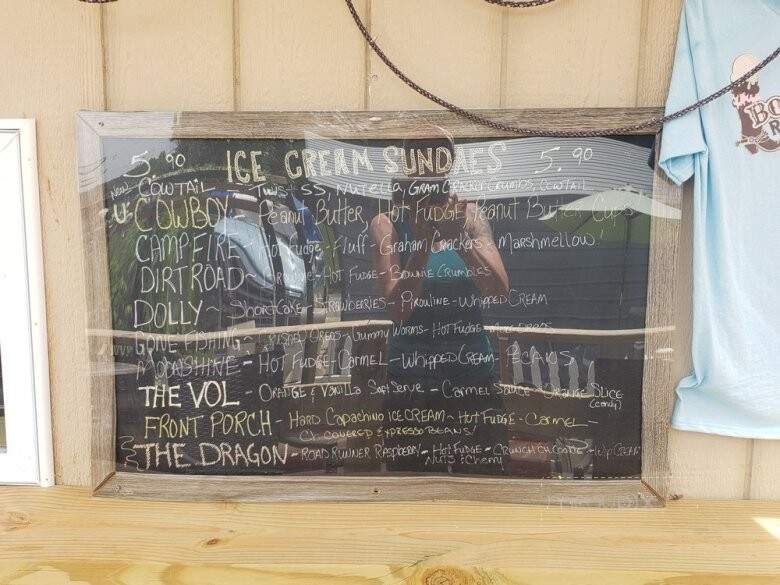 5.90 ICE CREAM SUNDAES 5.90
New COWTAIL - Twist SS, Nutella, Gram Cracker Crumbs, Cowtail
COWBOY - Peanut Butter, Hot Fudge, Peanut Butter Cups
CAMPFIRE - Hot Fudge - Fluff - Graham Crackers - Marshmellow
DIRT ROAD - Hot Fudge - Brownie Crumbles
DOLLY - Shortcake - Strawberries - Pirouline - Whipped Cream
GONE FISHING - Crushed Oreos - Gummy Worms - Hot Fudge
MOONSHINE - Hot Fudge - Carmel - Whipped Cream - Pecans
THE VOL - Orange & Vanilla Soft Serve - Carmel Sauce - Orange Slice
(candy)
FRONT PORCH - Hard Capachino Ice Cream - Hot Fudge - Carmel -
Covered Expresso Beans!
THE DRAGON - Road Runner Raspberry - Hot Fudge - Crunch Cookie - Whip Cream
Nuts & Cherry
BO